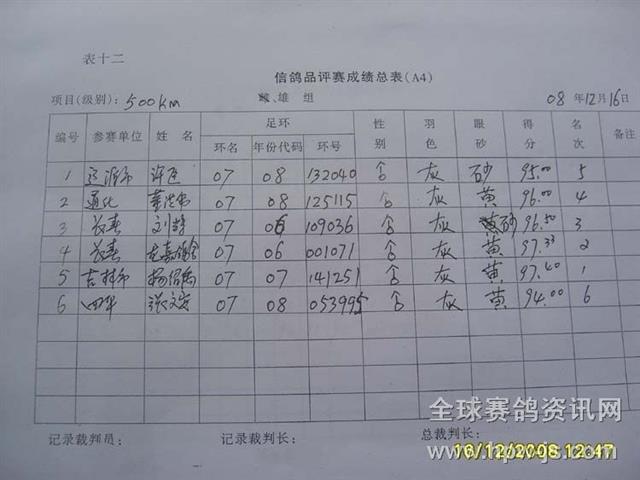 表十二
信鸽品评赛成绩总表(A4)
项目(级别): 500km 雄 组 08 年12月16日
编号 参赛单位 姓 名 足环 性别 羽色 眼砂 得分 名次 备注
环名 年份代码 环号
1 辽源市 07 08 132040 灰 砂 95.00 5
2 通化 07 08 125115 灰 黄 96.00 4
3 长春 刘静 07 06 109036 灰 黄砂 96.50 3
4 长春 07 06 001071 灰 黄 97.33 2
5 吉林市 07 07 141251 灰 黄 97.40 1
6 四平 张文安 07 08 053995 灰 黄 94.00 6
记录裁判员: 记录裁判长: 总裁判长:
全球赛鸽资讯网
16/12/2008 12:47